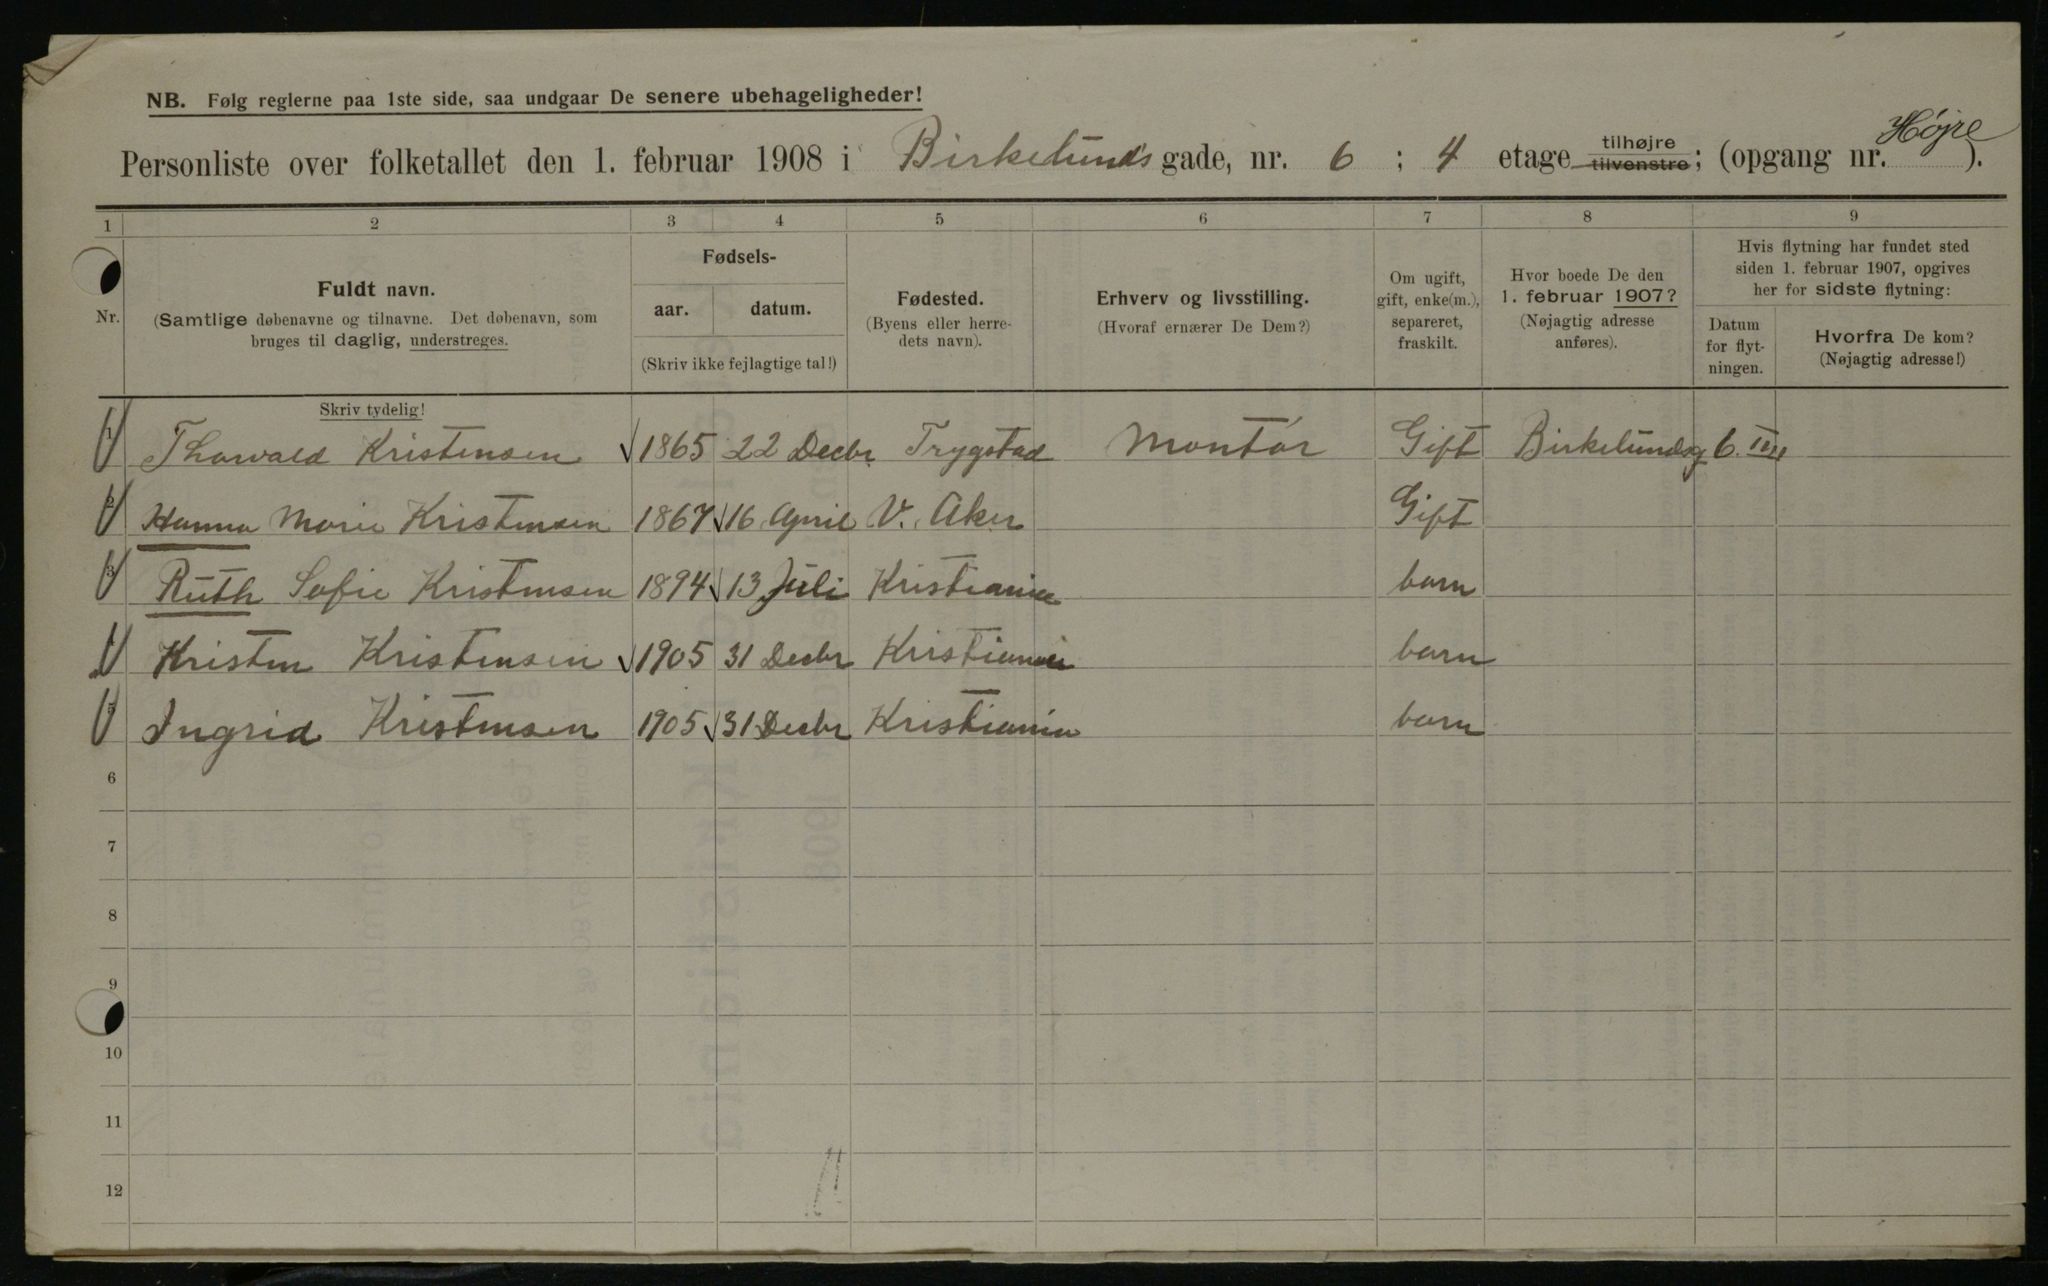 NB. Følg reglerne paa 1ste side, saa undgaar De senere ubehageligheder!
Personliste over folketallet den 1. februar 1908 i Birkelunds gade, nr. 6 ; 4 etage tilhøjre tilvenstre; (opgang nr. Højre ).
1 2 3 4 5 6 7 8 9
Nr.
Fuldt navn.
(Samtlige døbenavne og tilnavne. Det døbenavn, som
bruges til daglig, understreges.
Skriv tydelig!
Fødsels-
aar. datum.
(Skriv ikke fejlagtige tal!)
Fødested.
(Byens eller herre-
dets navn).
Erhverv og livsstilling.
(Hvoraf ernærer De Dem?)
Om ugift,
gift, enke(m.),
separeret,
fraskilt.
Hvor boede De den
1. februar 1907?
(Nøjagtig adresse
anføres).
Hvis flytning har fundet sted
siden 1. februar 1907, opgives
her for sidste flytning:
Datum
for flyt-
ningen.
Hvorfra De kom?
(Nøjagtig adresse!)
1 Thorvald Kristensen 1865 22 Decbr Trygstad Montør Gift Birkelundsg 6.
2 Hanna Marie Kristensen 1867 16 April V. Aker Gift
3 Ruth Sofie Kristensen 1894 13 Juli Kristiania barn
4 Kristen Kristensen 1905 31 Decbr Kristiania barn
5 Ingrid Kristensen 1905 31 Decbr Kristiania barn
6
7
8
9
10
11
12